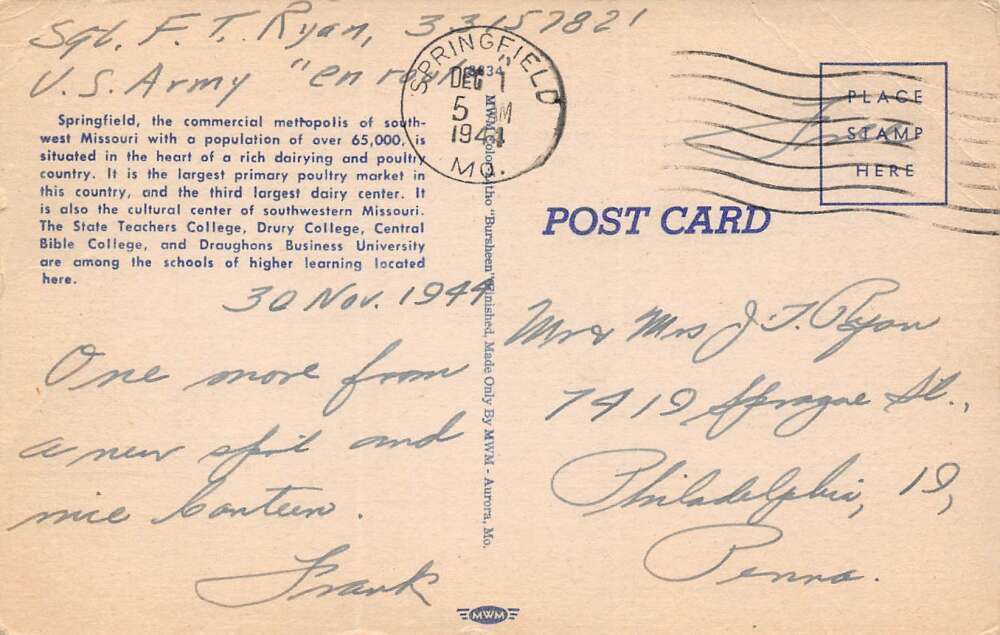 Sgt. F. T. Ryan, 33157821
U.S. Army "en route"
SPRINGFIELD
DEC 1
5 M
1944
MO.
Springfield, the commercial metropolis of south-
west Missouri with a population of over 65,000, is
situated in the heart of a rich dairying and poultry
country. It is the largest primary poultry market in
this country, and the third largest dairy center. It
is also the cultural center of southwestern Missouri.
The State Teachers College, Drury College, Central
Bible College, and Draughons Business University
are among the schools of higher learning located
here.
30 Nov. 1944
One more from
a new spot and
nice Canteen.
Frank
MWM Color-Litho "Bursheen" Finished, Made Only By MWM - Aurora, Mo.
PLACE
STAMP
HERE
Free
POST CARD
Mr & Mrs J. T. Ryan
7419 Sprague St.,
Philadelphia, 19,
Penna.
MWM